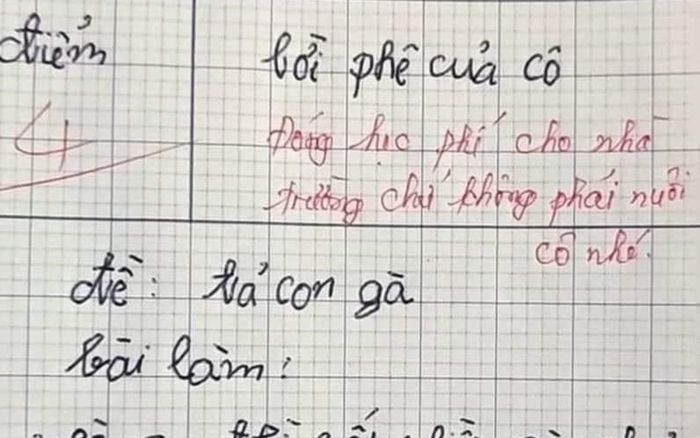 điểm
lời phê của cô
4
Đóng học phí cho nhà
trường chứ không phải nuôi
cô nhé.
đề: tả con gà
bài làm: